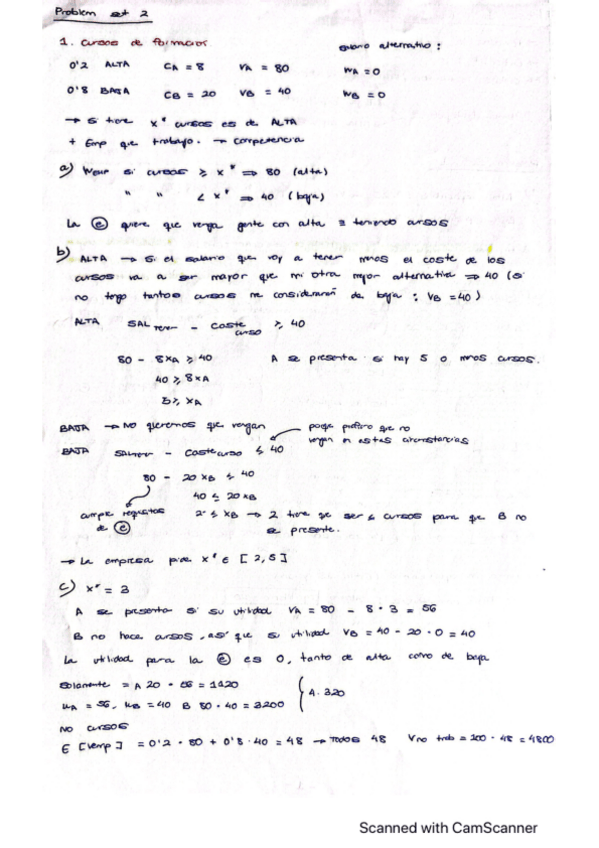 Problem set 2
1. Cursos de formación
salario alternativo :
0'2 ALTA CA = 8 VA = 80 WA = 0
0'8 BAJA CB = 20 VB = 40 WB = 0
→ si tiene x* cursos es de ALTA
+ Emp que trabajo. → competencia
a) si cursos ≥ x* ⇒ 80 (alta)
" " < x* ⇒ 40 (baja)
La ⓔ quiere que venga gente con alta teniendo cursos
b) ALTA → Si el salario que voy a tener menos el coste de los
cursos va a ser mayor que mi otra mejor alternativa ⇒ 40 (si
no tengo tantos cursos me considerarán de baja : VB = 40)
ALTA SAL tener - coste curso ≥ 40
80 - 8XA ≥ 40 A se presenta si hay 5 o menos cursos.
40 ≥ 8XA
5 ≥ XA
BAJA → No queremos que vengan
porque prefiero que no
vengan en estas circunstancias
BAJA - coste curso ≤ 40
80 - 20 XB ≤ 40
40 ≤ 20 XB
cumple requisitos de ⓔ
2 ≤ XB → 2 tiene que ser cursos para que B no
se presente.
→ La empresa pide x* ∈ [2,5]
c) x* = 3
A se presenta si su utilidad VA = 80 - 8 · 3 = 56
B no hace cursos, así que su utilidad VB = 40 - 20 · 0 = 40
La utilidad para la ⓔ es 0, tanto de alta como de baja
Solamente = A 20 · 56 = 1120
uA = 56, uB = 40 B 80 · 40 = 3200
4.320
No cursos
E [Vemp] = 0'2 · 80 + 0'8 · 40 = 48 → Todos 48 V no trab = 100 · 48 = 4800
Scanned with CamScanner